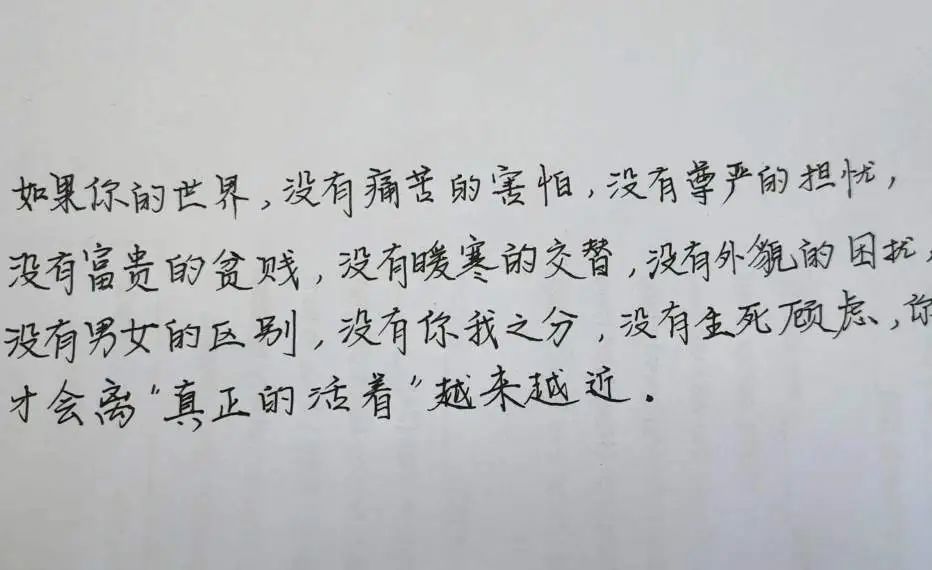 如果你的世界，没有痛苦的害怕，没有尊严的担忧，
没有富贵的贫贱，没有暖寒的交替，没有外貌的困扰，
没有男女的区别，没有你我之分，没有生死顾虑，你
才会离“真正的活着”越来越近．